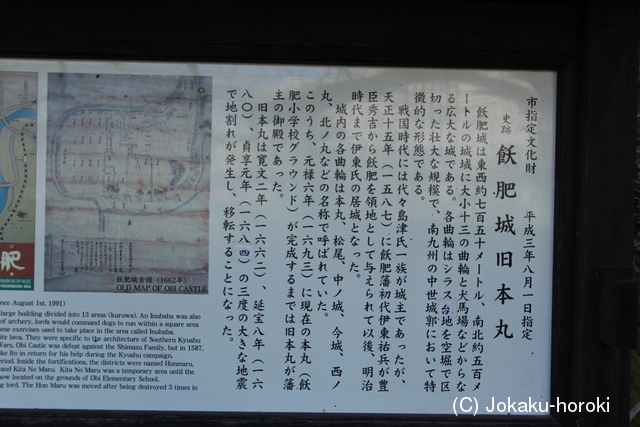 市指定文化財　平成三年八月一日指定
史跡　飫肥城旧本丸
飫肥城は東西約七百五十メートル、南北約五百メ
ートルの城域に大小十三の曲輪と犬馬場などからな
る広大な城である。各曲輪はシラス台地を空堀で区
切った壮大な規模で、南九州の中世城郭において特
徴的な形態である。
戦国時代には代々島津氏一族が城主であったが、
天正十五年（一五八七）に飫肥藩初代伊東祐兵が豊
臣秀吉から飫肥を領地として与えられて以後、明治
時代まで伊東氏の居城となった。
城内の各曲輪は本丸、松尾、中ノ城、今城、西ノ
丸、北ノ丸などの名称で呼ばれていた。
このうち、元禄六年（一六九三）に現在の本丸（飫
肥小学校グラウンド）が完成するまでは旧本丸が藩
主の御殿であった。
旧本丸は寛文二年（一六六二）、延宝八年（一六
八〇）、貞享元年（一六八四）の三度の大きな地震
で地割れが発生し、移転することになった。
飫肥城古図（1662年）
OLD MAP OF OBI CASTLE
肥
nce August 1st, 1991)
large building divided into 13 areas (kuruwa). An Inubaba was also
of archery, lords would command dogs to run within a square area
ese exercises used to take place in the area called Inubaba.
ite lava. They were specific to the architecture of Southern Kyushu
Wars, Obi Castle was defeat against the Shimazu Family, but in 1587,
ke Ito in return for his help during the Kyushu campaign.
eriod. Inside the fortifications, the districts were named Honmaru,
and Kita No Maru. Kita No Maru was a temporary area until the
now located on the grounds of Obi Elementary School.
g lord. The Hon Maru was moved after being destroyed 3 times in
(C) Jokaku-horoki